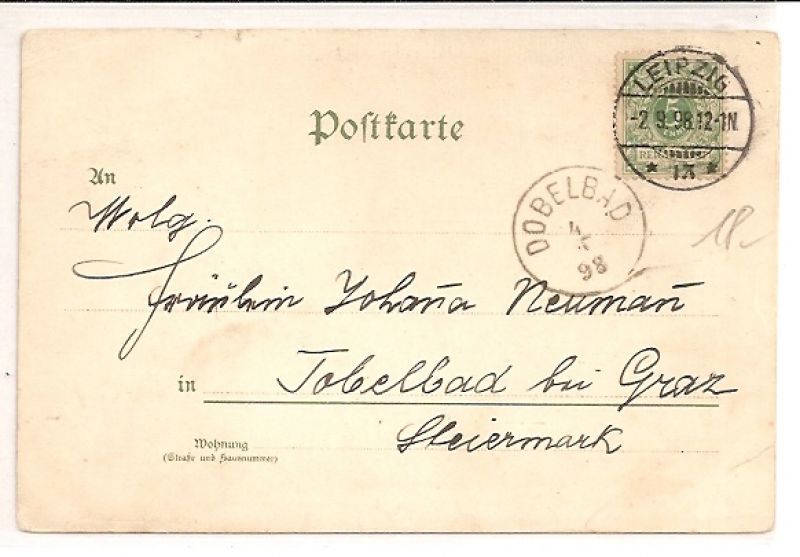 Postkarte
LEIPZIG
-2 9.98.12-1N.
* 13 *
5
DOBELBAD
98
An
Wolg.
18-
Fräulein Johana̅ Neuman̅
in Tobelbad bei Graz
Wohnung
(Straße und Hausnummer)
Steiermark